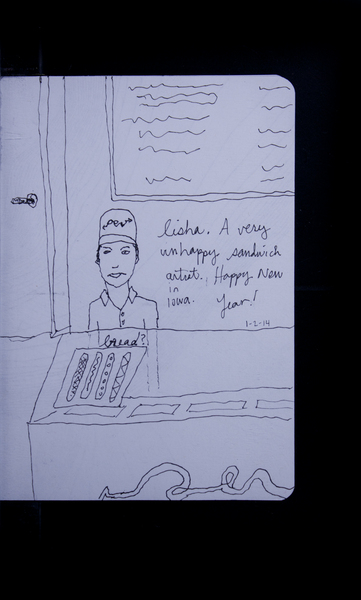 lisha. A very
unhappy sandwich
artist. Happy New
in
Iowa. Year!
1-2-14
bread?